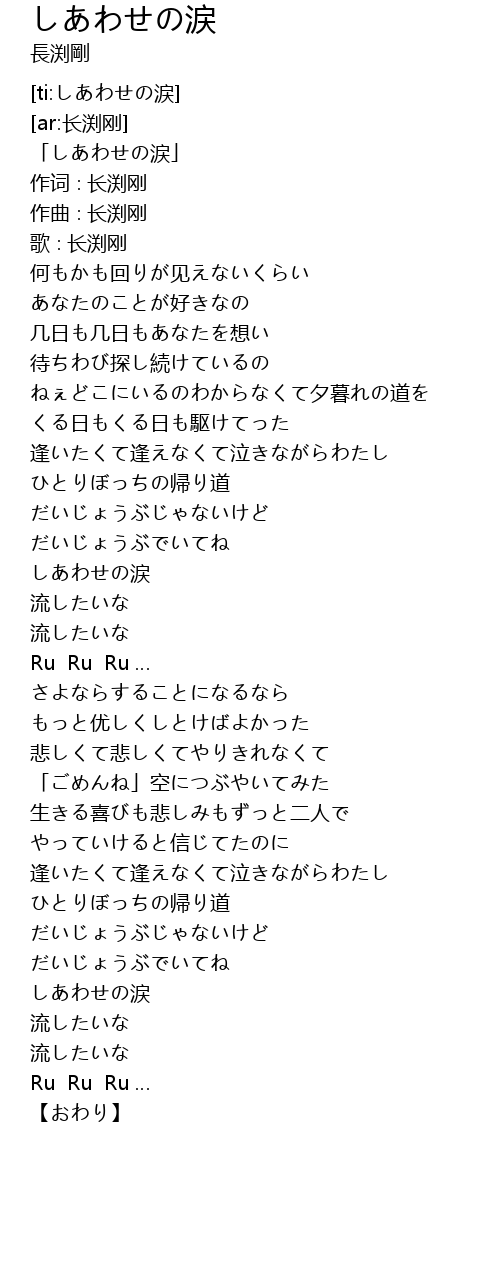 しあわせの涙
長渕剛
[ti:しあわせの涙]
[ar:长渕刚]
「しあわせの涙」
作词 : 长渕刚
作曲 : 长渕刚
歌 : 长渕刚
何もかも回りが见えないくらい
あなたのことが好きなの
几日も几日もあなたを想い
待ちわび探し続けているの
ねぇどこにいるのわからなくて夕暮れの道を
くる日もくる日も駆けてった
逢いたくて逢えなくて泣きながらわたし
ひとりぼっちの帰り道
だいじょうぶじゃないけど
だいじょうぶでいてね
しあわせの涙
流したいな
流したいな
Ru Ru Ru ...
さよならすることになるなら
もっと优しくしとけばよかった
悲しくて悲しくてやりきれなくて
「ごめんね」空につぶやいてみた
生きる喜びも悲しみもずっと二人で
やっていけると信じてたのに
逢いたくて逢えなくて泣きながらわたし
ひとりぼっちの帰り道
だいじょうぶじゃないけど
だいじょうぶでいてね
しあわせの涙
流したいな
流したいな
Ru Ru Ru ...
【おわり】